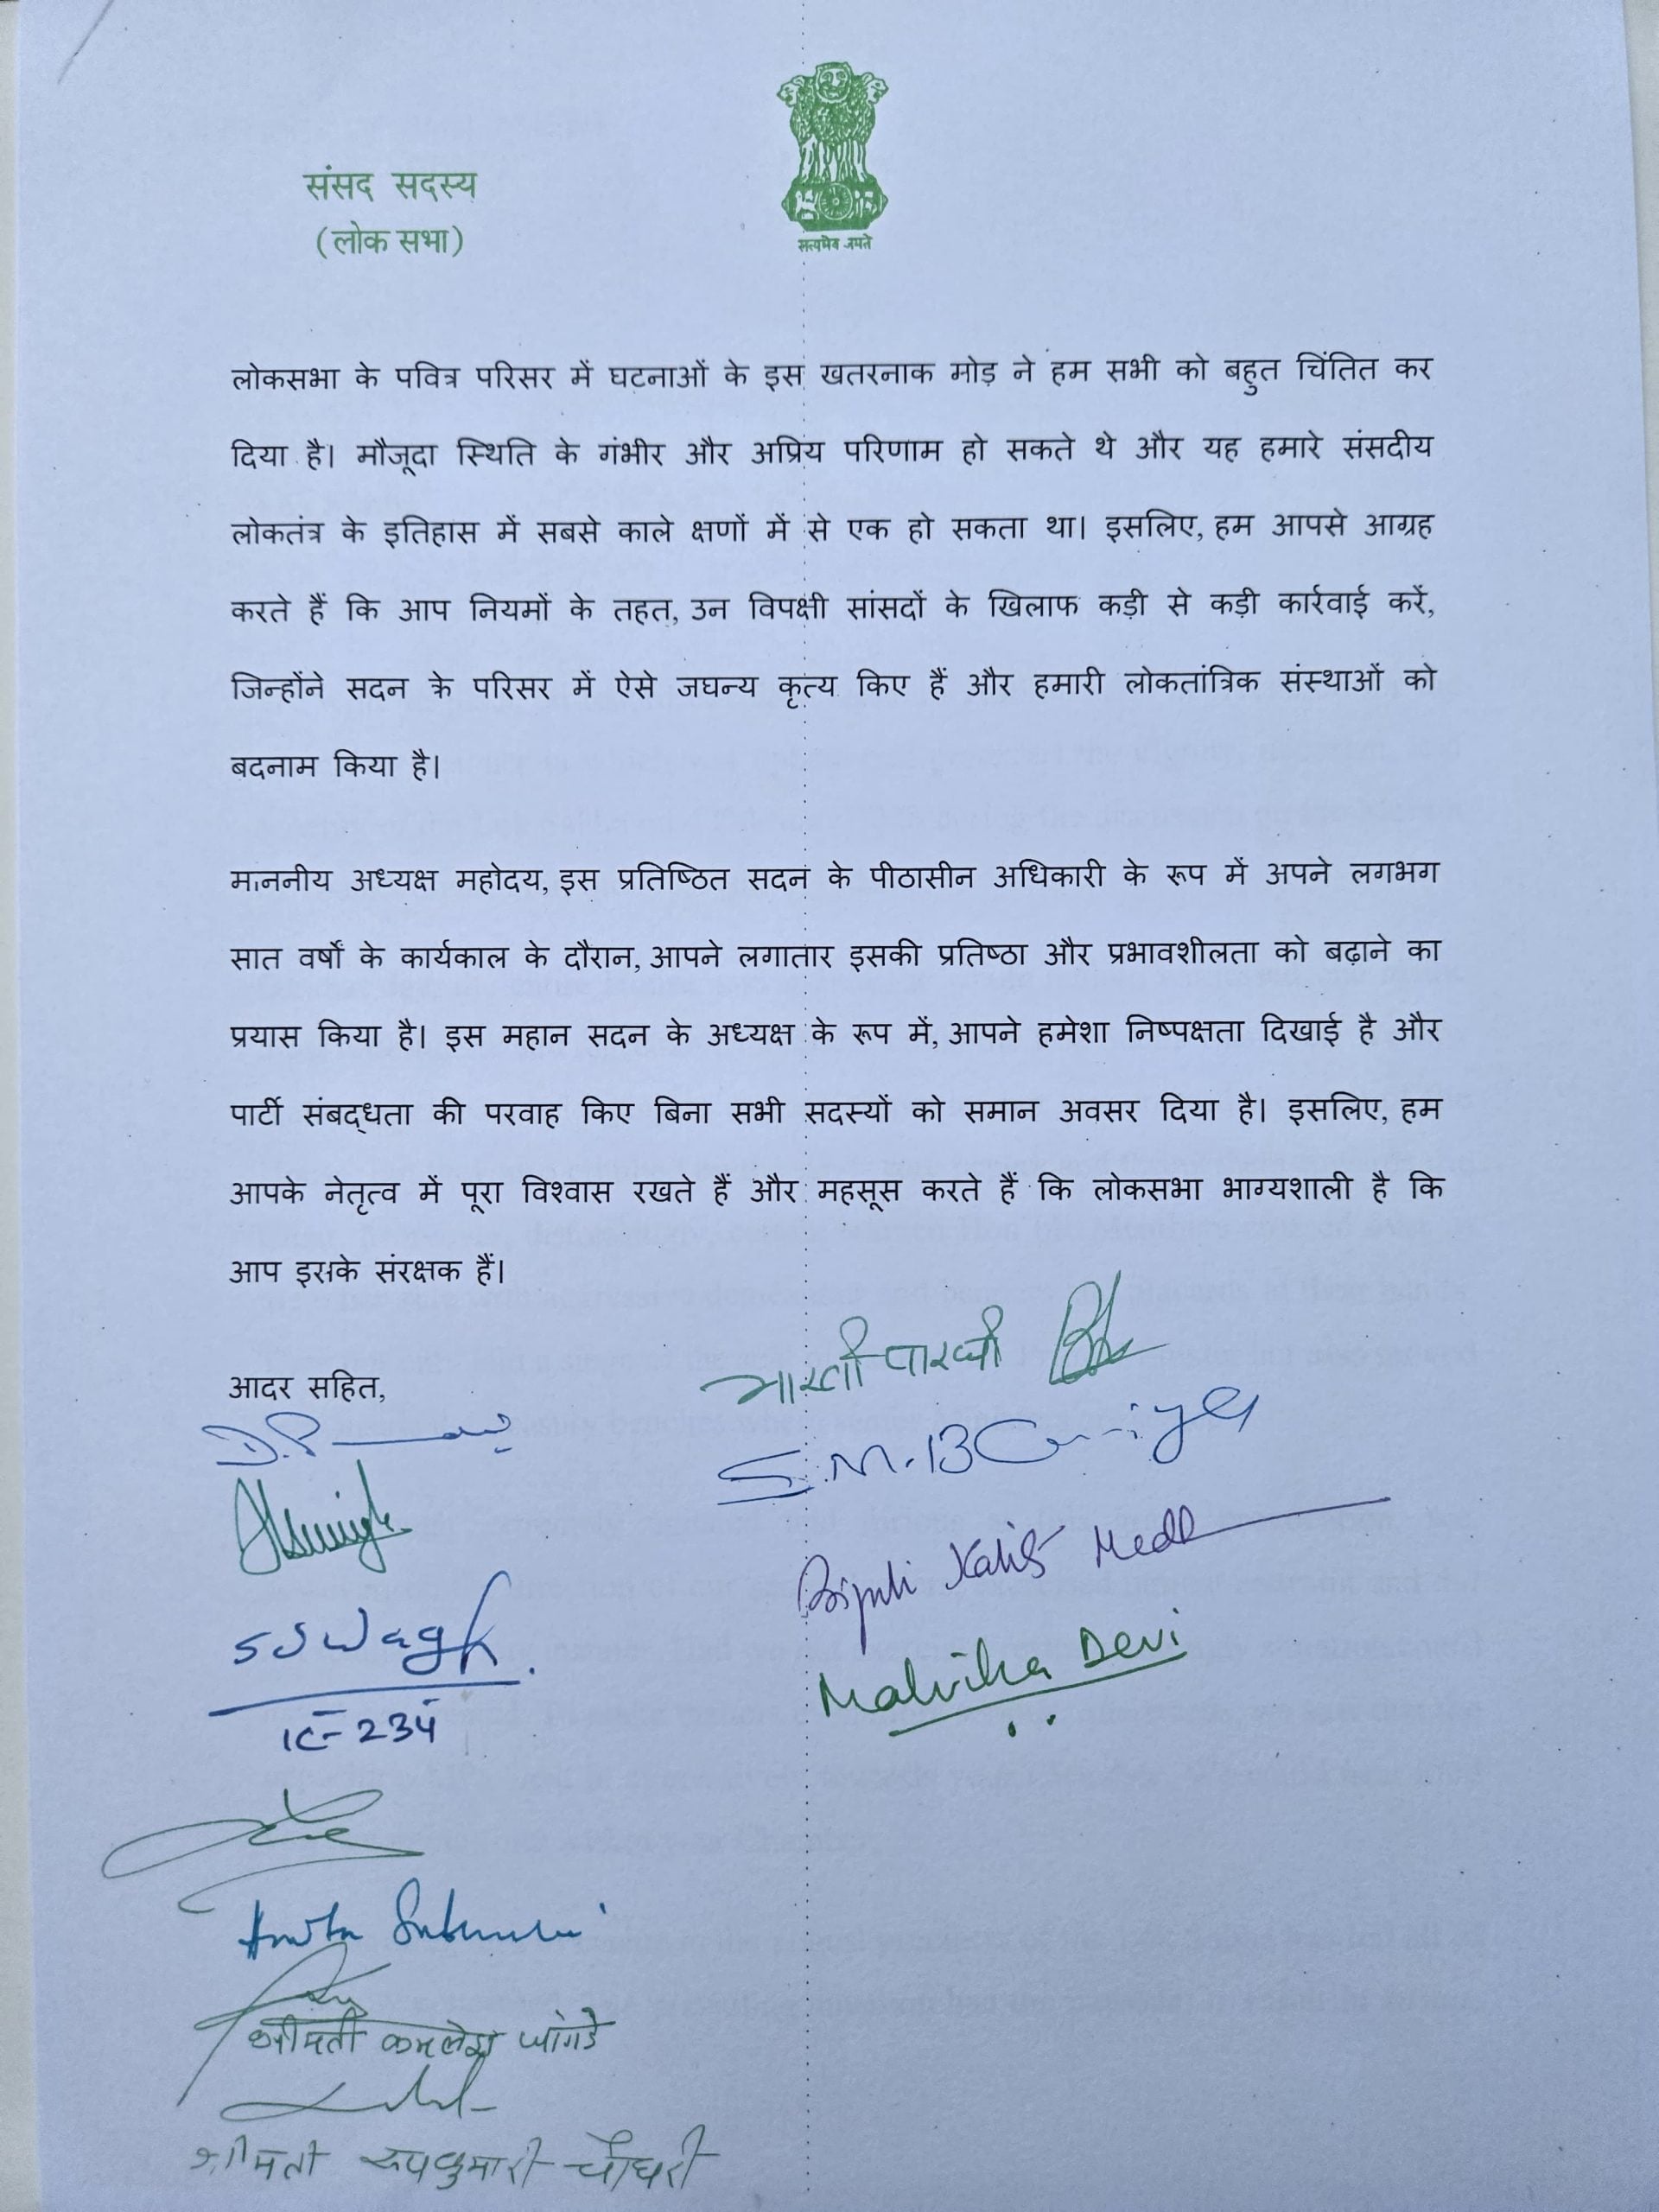 संसद सदस्य
(लोक सभा)
सत्यमेव जयते
लोकसभा के पवित्र परिसर में घटनाओं के इस खतरनाक मोड़ ने हम सभी को बहुत चिंतित कर
दिया है। मौजूदा स्थिति के गंभीर और अप्रिय परिणाम हो सकते थे और यह हमारे संसदीय
लोकतंत्र के इतिहास में सबसे काले क्षणों में से एक हो सकता था। इसलिए, हम आपसे आग्रह
करते हैं कि आप नियमों के तहत, उन विपक्षी सांसदों के खिलाफ कड़ी से कड़ी कार्रवाई करें,
जिन्होंने सदन के परिसर में ऐसे जघन्य कृत्य किए हैं और हमारी लोकतांत्रिक संस्थाओं को
बदनाम किया है।
माननीय अध्यक्ष महोदय, इस प्रतिष्ठित सदन के पीठासीन अधिकारी के रूप में अपने लगभग
सात वर्षों के कार्यकाल के दौरान, आपने लगातार इसकी प्रतिष्ठा और प्रभावशीलता को बढ़ाने का
प्रयास किया है। इस महान सदन के अध्यक्ष के रूप में, आपने हमेशा निष्पक्षता दिखाई है और
पार्टी संबद्धता की परवाह किए बिना सभी सदस्यों को समान अवसर दिया है। इसलिए, हम
आपके नेतृत्व में पूरा विश्वास रखते हैं और महसूस करते हैं कि लोकसभा भाग्यशाली है कि
आप इसके संरक्षक हैं।
आदर सहित,
भारती पारधी
D.P.
S.M.B
SSWagh.
IC-234
Bijuli Kalita Medhi
Malvika Devi
श्रीमती कमलेश जांगडे
श्रीमती रूपकुमारी चौधरी